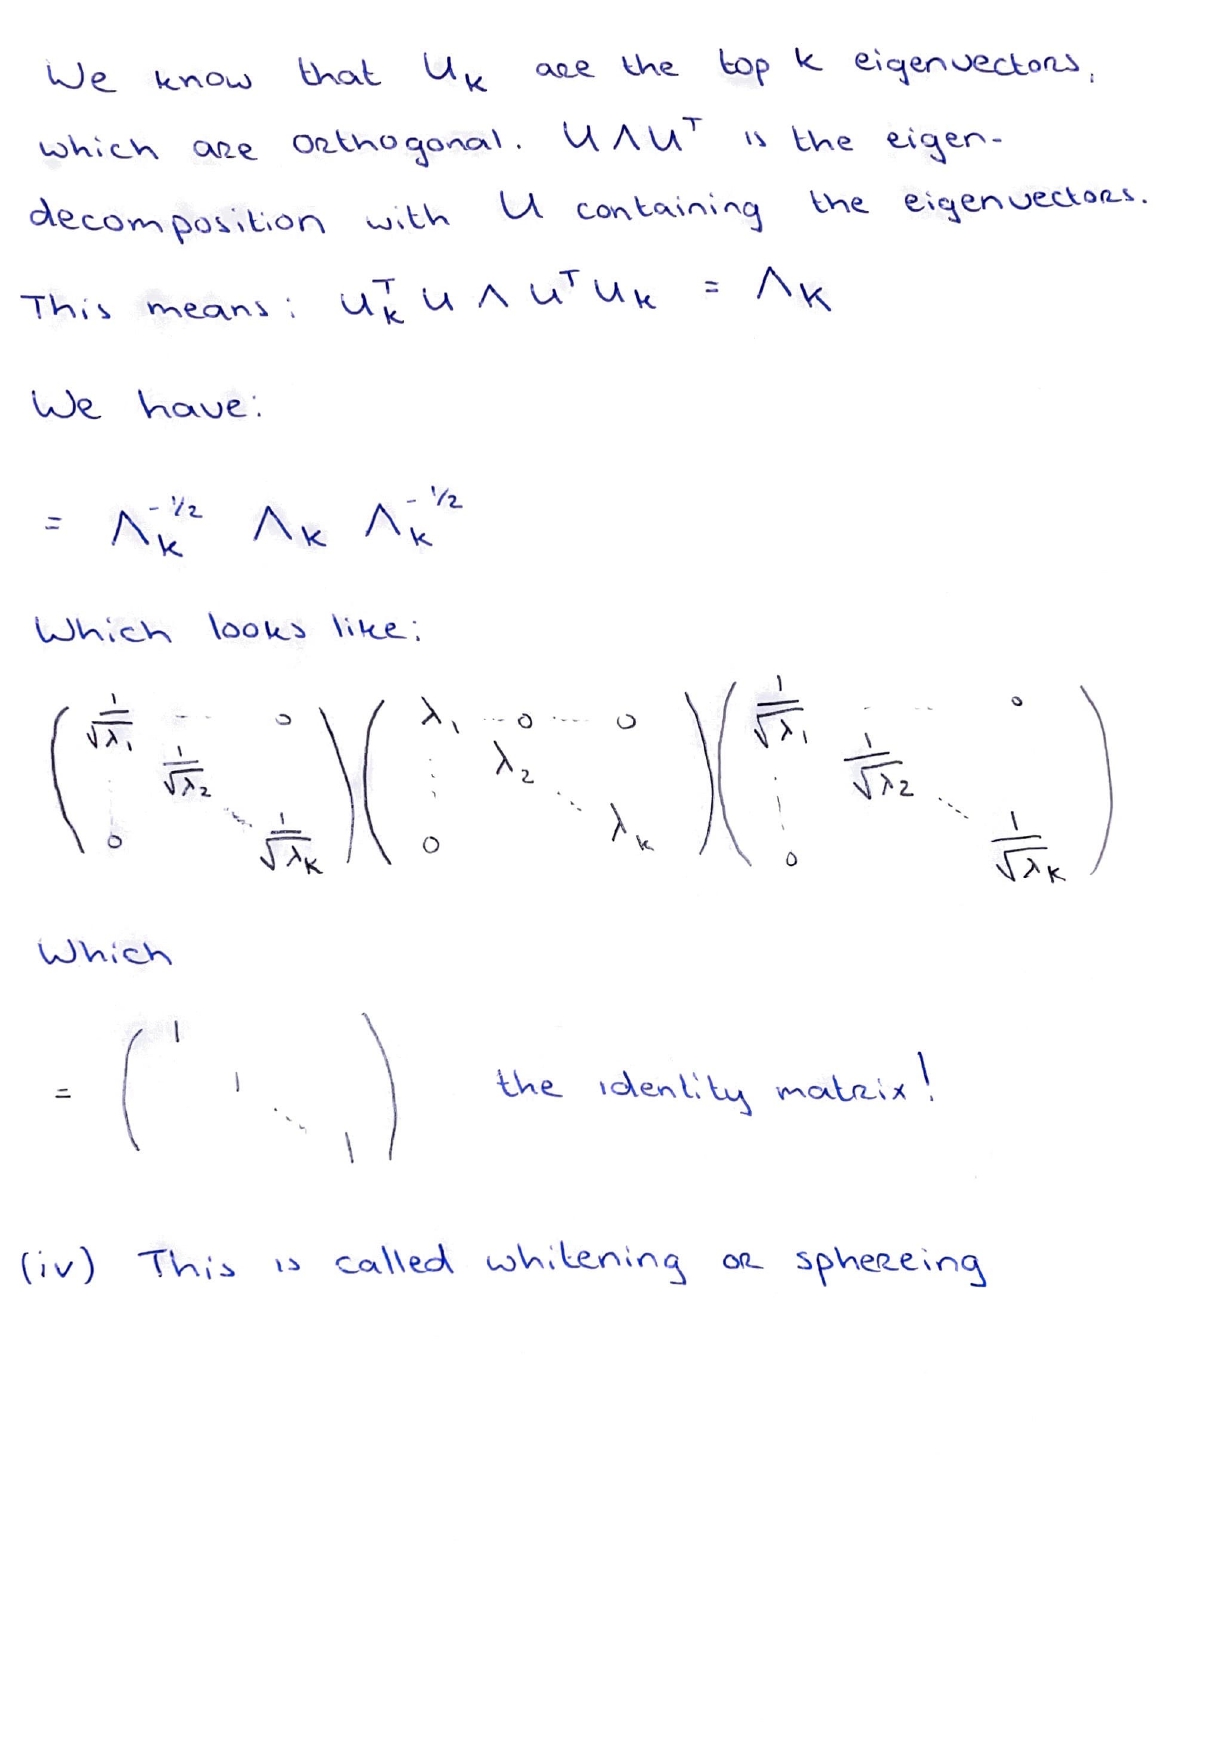 We know that U_k are the top k eigenvectors,
which are orthogonal. UΛU^T is the eigen-
decomposition with U containing the eigenvectors.
This means: U_k^T U Λ U^T U_k = Λ_k
We have:
= Λ_k^{-1/2} Λ_k Λ_k^{-1/2}
Which looks like:
( 1/√λ_1 ... 0 ) ( λ_1 ... 0 .... 0 ) ( 1/√λ_1 ... 0 )
( ⋮ 1/√λ_2 ) ( ⋮ λ_2 ) ( ⋮ 1/√λ_2 )
( 0 ⋱ 1/√λ_k ) ( 0 ⋱ λ_k ) ( 0 ⋱ 1/√λ_k )
Which
= ( 1 1 ⋱ 1 ) the identity matrix!
(iv) This is called whitening or sphereing